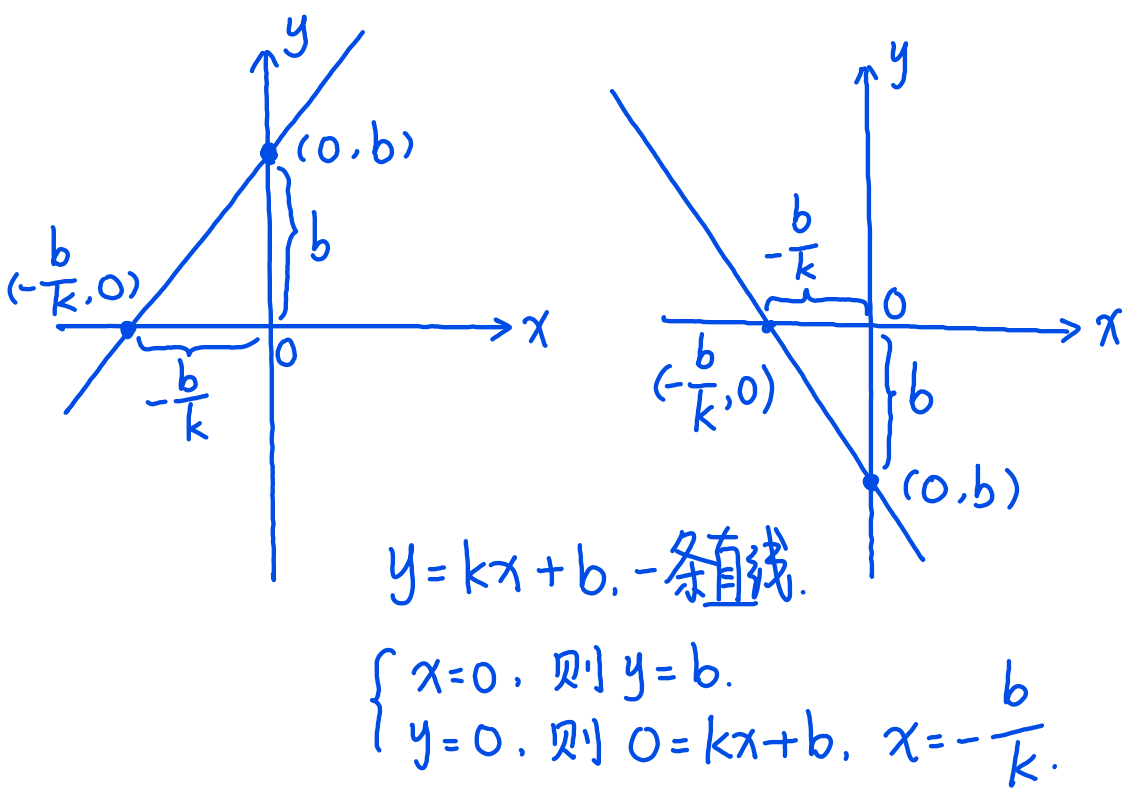 y
(0,b)
b
(-b/k,0)
x
0
-b/k
y
-b/k
0
x
(-b/k,0)
b
(0,b)
y=kx+b,一条直线.
x=0,则y=b.
y=0,则0=kx+b,x=-b/k.